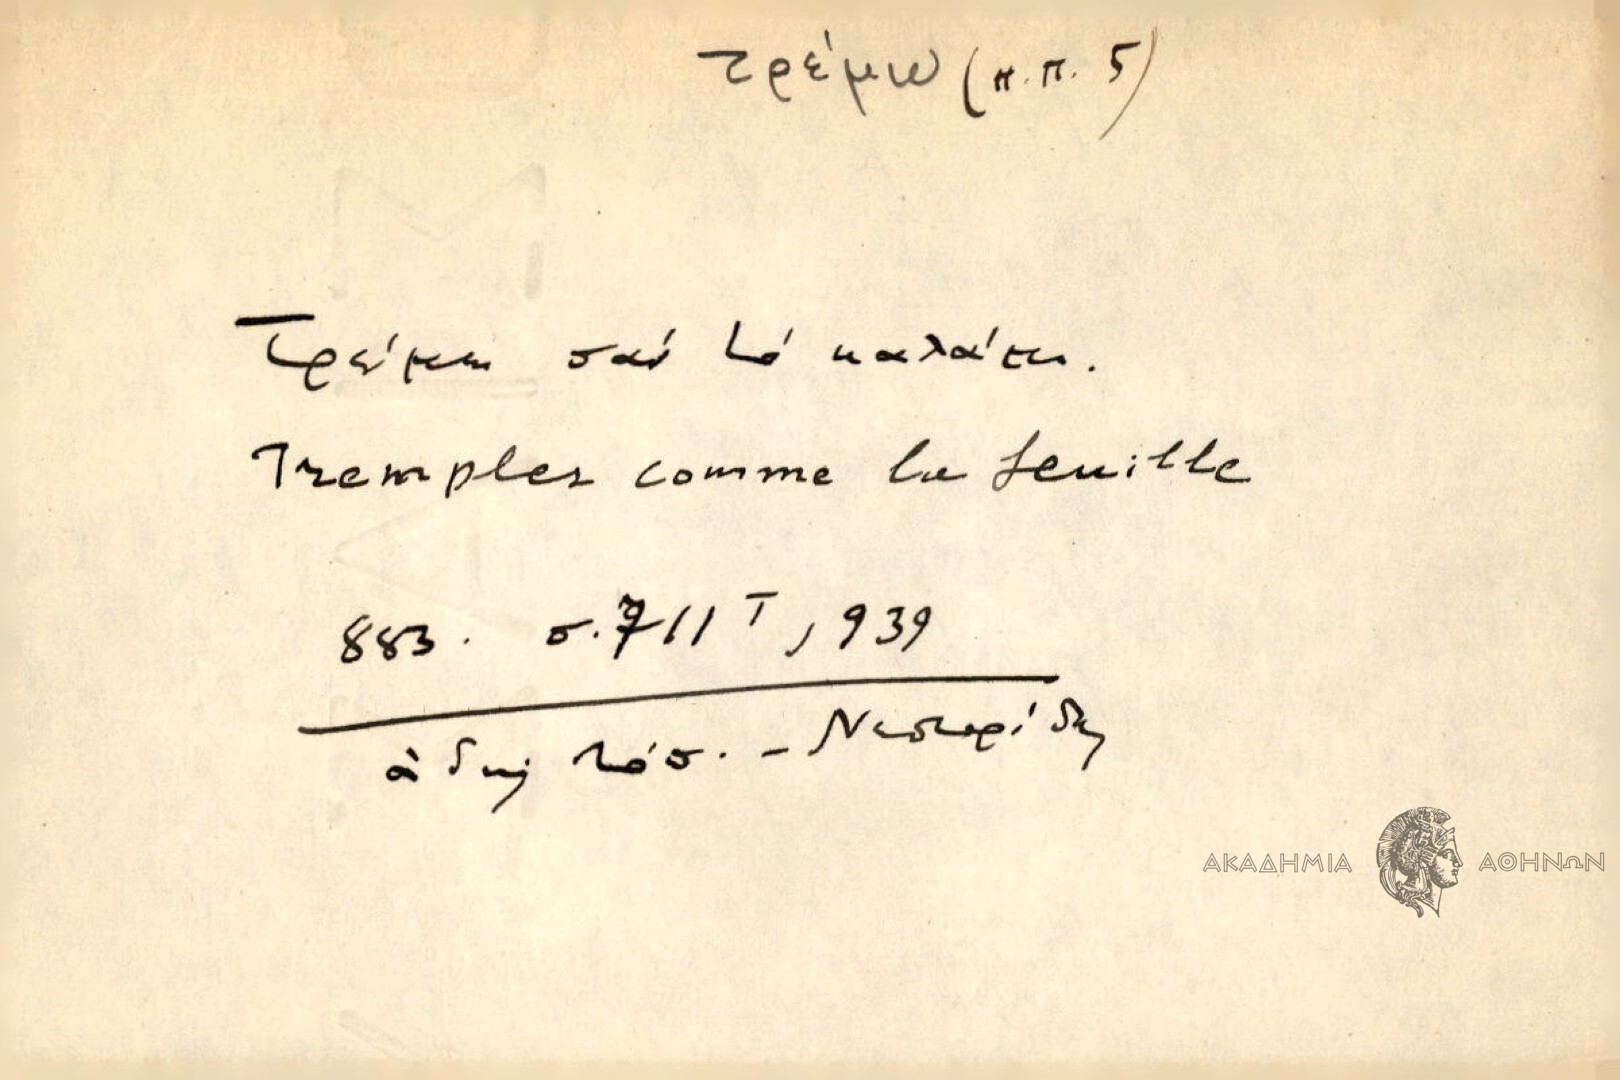 τρέμω (π.π. 5)
Τρέμει σαν το καλάμι.
Trempler comme la feuille
883. σ. 711 Τ, 939
ἀδήλ τόπ. - Νεστορίδη
ΑΚΑΔΗΜΙΑ ΑΘΗΝΩΝ